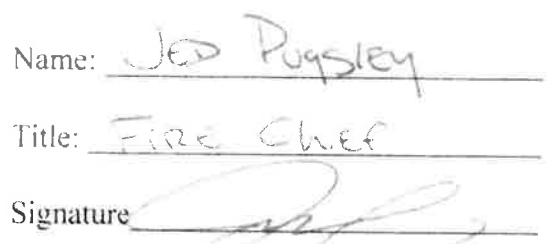 Name: JED Pugsley
Title: FIRE Chief
Signature